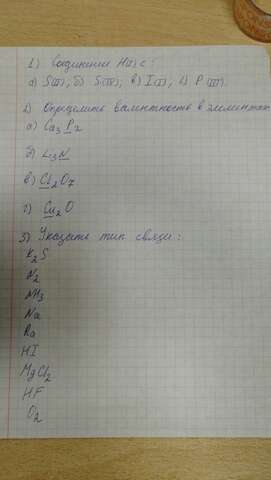 1) Соединение H(I) с:
а) S(II); б) S(IV); в) I(I); г) P(III)
2) Определить валентность в элементах
а) Ca3P2
б) Li3N
в) Cl2O7
г) Cu2O
3) Указать тип связи:
K2S
N2
NH3
Na
Ba
HI
MgCl2
HF
O2